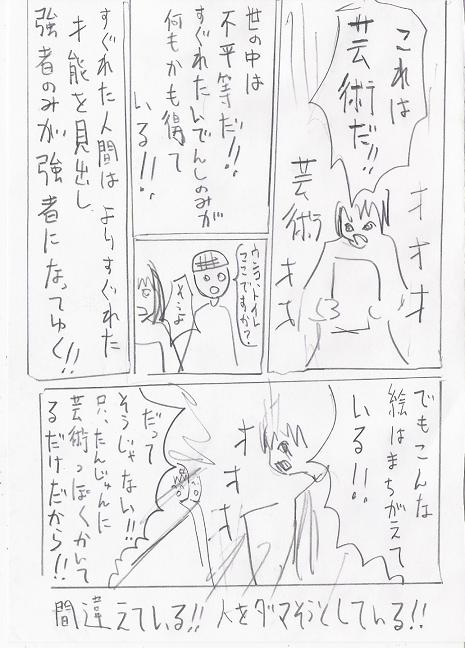 これは
芸術だ!!
オオオ
芸術
オオ
世の中は
不平等だ!!
すぐれたいでんしのみが
何もかも得て
いる!!
ウンコ、トイレ
ここですか?
そうよ
すぐれた人間はよりすぐれた
才能を見出し
強者のみが強者になってゆく!!
でもこんな
絵はまちがえて
いる!!
オオオオ
だって
そうじゃない!!
只、たんじゅんに
芸術っぽくかいて
るだけだから!!
間違えている!!人をダマそうとしている!!